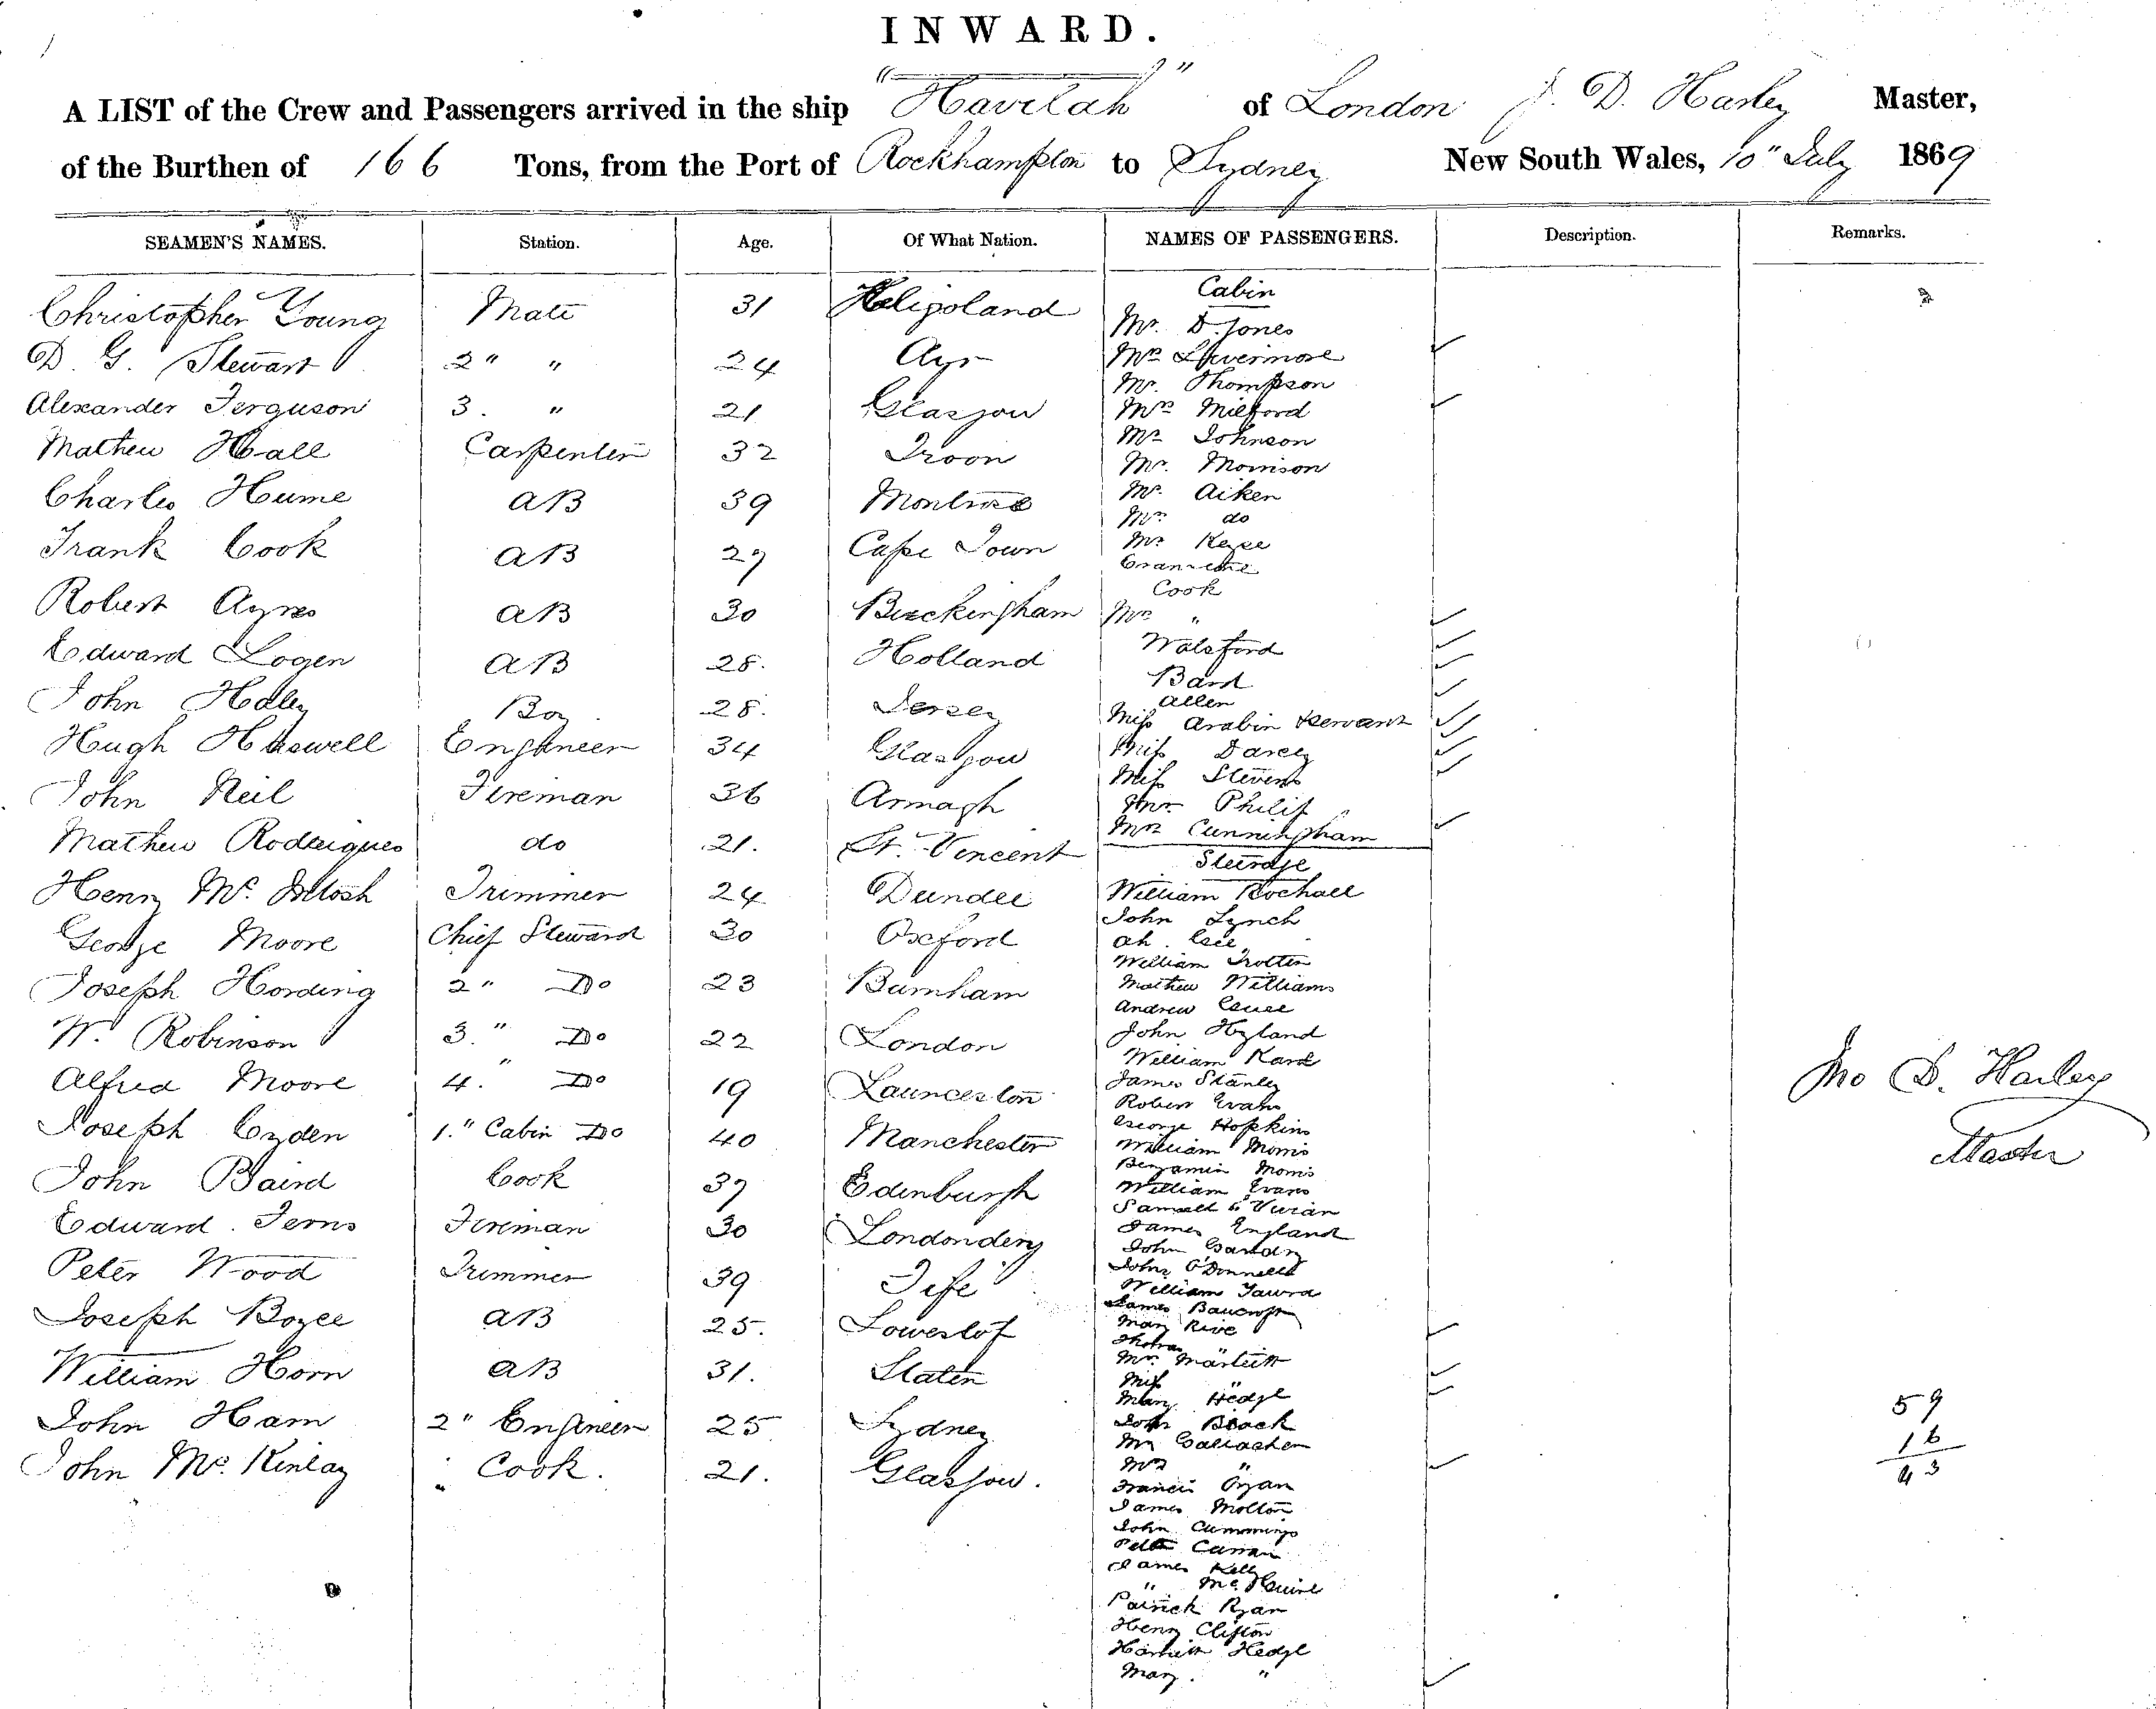 INWARD.
A LIST of the Crew and Passengers arrived in the ship "Havilah" of London J. D. Harley Master,
of the Burthen of 166 Tons, from the Port of Rockhampton to Sydney New South Wales, 10" July 1869
SEAMEN'S NAMES. Station. Age. Of What Nation. NAMES OF PASSENGERS. Description. Remarks.
Christopher Young Mate 31 Heligoland
D. G. Stewart 2" " 24 Ayr
Alexander Ferguson 3. " 21 Glasgow
Mathew Hall Carpenter 32 Troon
Charles Hume AB 39
Frank Cook AB 29 Cape Town
Robert Ayres AB 30 Buckingham
Edward Logen AB 28. Holland
John Hedley Boy 28. Jersey
Hugh Haswell Engineer 34 Glasgow
John Neil Fireman 36 Armagh
Mathew Rodrigues do 21. St. Vincent
Henry Mc. Intosh Trimmer 24 Dundee
George Moore Chief Steward 30 Oxford
Joseph Harding 2" Do 23 Burnham
W. Robinson 3." Do 22 London
Alfred Moore 4." Do 19 Launceston
Joseph 1." Cabin Do 40 Manchester
John Baird Cook 37 Edinburgh
Edward Ferns Fireman 30 Londondery
Peter Wood Trimmer 39 Fife
Joseph Boyce AB 25. Lowestof
William Horn AB 31. Staten
John Ham 2" Engineer 25 Sydney
John Mc. Kinlay " Cook. 21. Glasgow.
Cabin
Mr. D. Jones
Mrs Livermore
Mr. Thompson
Mrs Milford
Mr Johnson
Mr. Morrison
Mr. Aiken
Mrs do
Mr
Cook
Mrs "
Walsford
Bard
Allen
Miss Arabin Servant
Miss Darcy
Miss Stevens
Mr Philip
Mrs Cunningham
Steerage
William Rochall
John Lynch
Ah.
William Trotter
Mathew Williams
Andrew
John Hyland
William
James Stanley
Robert Evans
George Hopkins
William Morris
Benjamin Morris
William Evans
Samuel
James England
John
John O'Donnell
William
James Bancroft
Mary Rive
Mrs
Miss "
Mary Hedge
John
Mr Gallagher
Mrs "
Francis Ryan
James Molton
John Cummings
Peter Curran
James Kelly
" Mc.
Patrick Ryan
Henry Clifton
Harriett Hedge
Mary. "
Jno D. Harley
Master
59
16
43